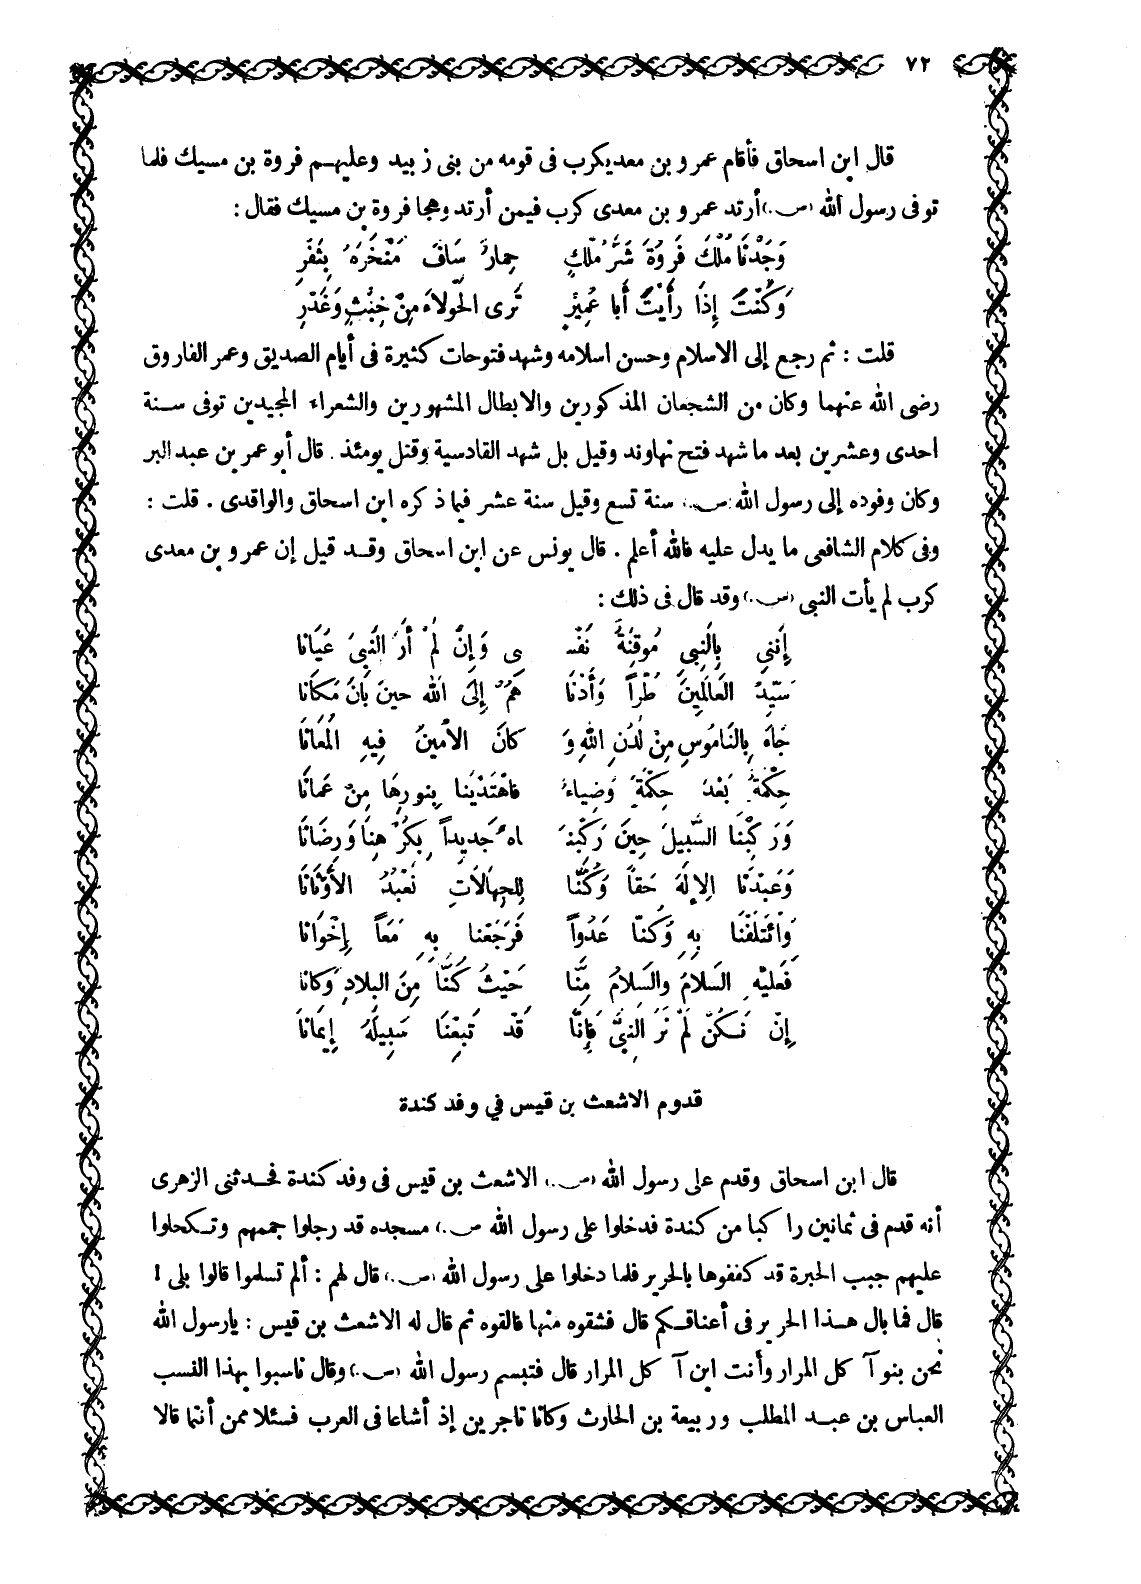 ٧٢
قال ابن اسحاق فأقام عمرو بن معديكرب فى قومه من بنى زبيد وعليهم فروة بن مسيك فلما
توفى رسول الله (ص.) أرتد عمرو بن معدى كرب فيمن أرتد وهجا فروة بن مسيك فقال :
وَجَدْنَا مُلْكَ فَرْوَةَ شَرَّ مُلْكٍ حِمارٌ سَافَ مَنْخَرَهُ بِثَفْرِ
وَكُنْتَ إِذَا رأَيْتَ أَبا عُمَيْرٍ تَرى الحَوْلاءَ مِنْ خِبْثٍ وَغَدْرِ
قلت : ثم رجع إلى الاسلام وحسن اسلامه وشهد فتوحات كثيرة فى أيام الصديق وعمر الفاروق
رضى الله عنهما وكان من الشجعان المذكورين والابطال المشهورين والشعراء المجيدين توفى سنة
احدى وعشرين بعد ما شهد فتح نهاوند وقيل بل شهد القادسية وقتل يومئذ . قال أبو عمر بن عبد البر
وكان وفوده إلى رسول الله (ص.) سنة تسع وقيل سنة عشر فيما ذكره ابن اسحاق والواقدى . قلت :
وفى كلام الشافعى ما يدل عليه فالله أعلم . قال يونس عن ابن اسحاق وقد قيل إن عمرو بن معدى
كرب لم يأت النبى (ص.) وقد قال فى ذلك :
إِنَنى بِالنَبىِ مُوقِنَةٌ نَفْسـ ـى وَإِنْ لَمْ أَرَ النَبىَ عَيَانا
سَيِّدُ العَالَمِينَ طُرّاً وَأَدْنَا هُمْ إِلَى الله حينَ بَانَ مَكَانا
جَاءَ بِالنَامُوسِ مِنْ لَدُنِ اللهِ وَ كانَ الأَمينُ فِيهِ المُعَانَا
حِكْمَةٌ بَعْدَ حِكْمَةٍ وَضِياءٌ فاهْتَدَيْنا بِنورِهَا مِنْ عَمانَا
وَرَكِبْنَا السَّبيلَ حِينَ رَكِبْنـَ ـاه جَديداً بِكُرْهِنا وَرِضَانَا
وَعَبَدْنَا الإِلَهَ حَقاً وَكُنَّا لِلجِهالَاتِ نَعْبُدُ الأَوْثَانَا
وَائْتَلَفْنَا بِهِ وَكُنّا عَدُواً فَرَجَعْنا بِهِ مَعَاً إِخْوَانَا
فَعَليْهِ السَلَامُ والسَلَامُ مِنَّا حَيْثُ كَنَّا مِنَ البِلادِ وَكانا
إِنْ نَكُنْ لَمْ نَرَ النبىَّ فَإِنَّا قَدْ تَبِعْنَا سَبِيلَهُ إِيمَانَا
قدوم الاشعث بن قيس في وفد كندة
قال ابن اسحاق وقدم على رسول الله (ص.) الاشعث بن قيس فى وفد كندة فحدثنى الزهرى
أنه قدم فى ثمانين راكبا من كندة فدخلوا على رسول الله ص.) مسجده قد رجلوا جممهم وتكحلوا
عليهم جبب الحبرة قد كففوها بالحرير فلما دخلوا على رسول الله (ص.) قال لهم : ألم تسلموا قالوا بلى !
قال فما بال هذا الحرير فى أعناقكم قال فشقوه منها فالقوه ثم قال له الاشعث بن قيس : يارسول الله
نحن بنو آ كل المرار وأنت ابن آ كل المرار قال فتبسم رسول الله (ص.) وقال ناسبوا بهذا النسب
العباس بن عبد المطلب وربيعة بن الحارث وكانا تاجرين إذ أشاعا فى العرب فسئلا ممن أنتما قالا